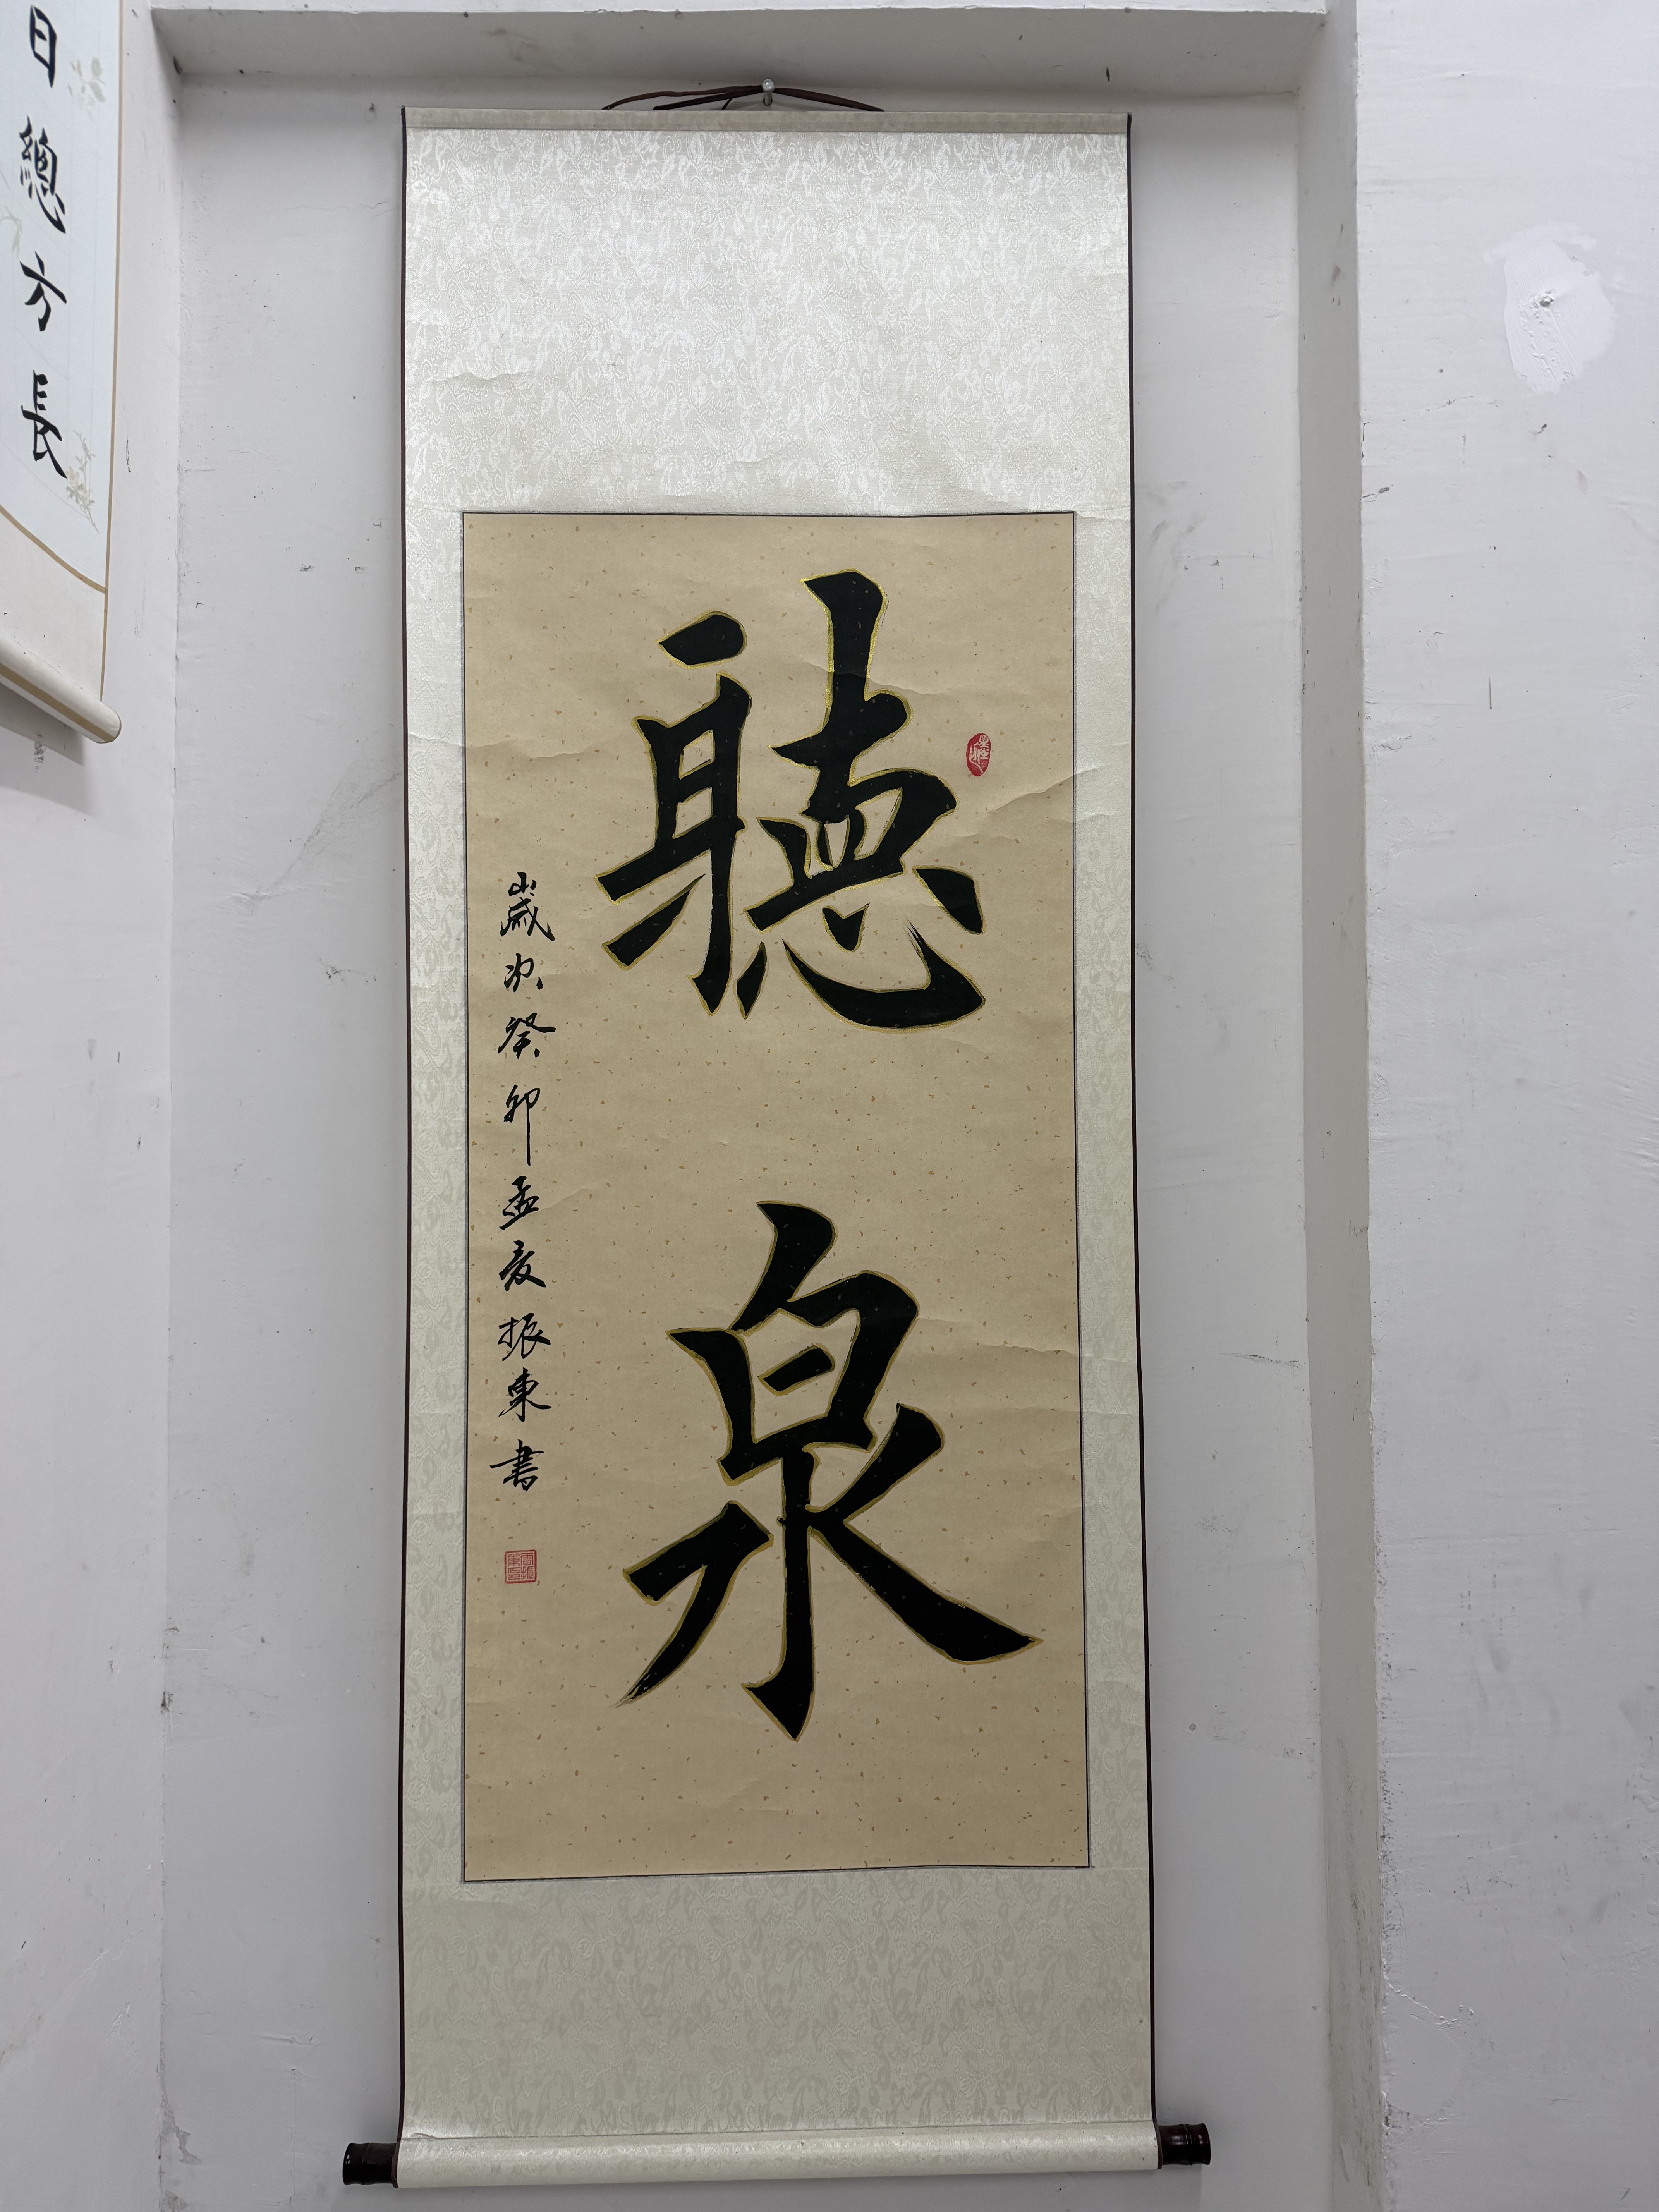 聽泉
歲次癸卯孟夏振東書
日總方長